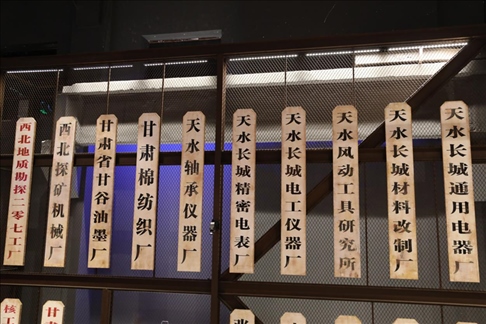 西北地质勘探二零七工厂
西北探矿机械厂
甘肃省甘谷油墨厂
甘肃棉纺织厂
天水轴承仪器厂
天水长城精密电表厂
天水长城电工仪器厂
天水风动工具研究所
天水长城材料改制厂
天水长城通用电器厂
核工
甘肃